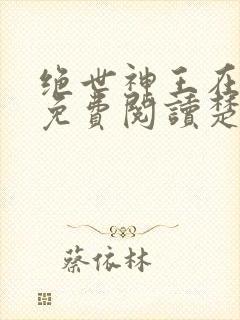 绝世神王在
免費閱讀楚
蔡依林